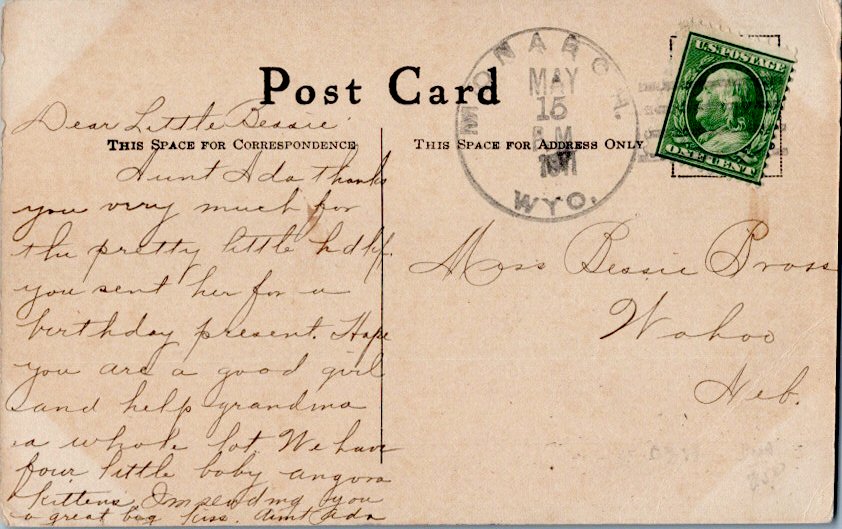 Post Card
THIS SPACE FOR CORRESPONDENCE
THIS SPACE FOR ADDRESS ONLY
MONARCH.
MAY
15
WYO.
U.S. POSTAGE
ONE CENT
Dear Little Bessie
Aunt Ada thanks
you very much for
the pretty little hdkf.
you sent her for a
birthday present. Hope
you are a good girl
and help grandma
a whole lot. We have
four little baby angora
kittens. Im sending you
a great big kiss. Aunt Ada
Miss Bessie Bross
Wahoo
Neb.